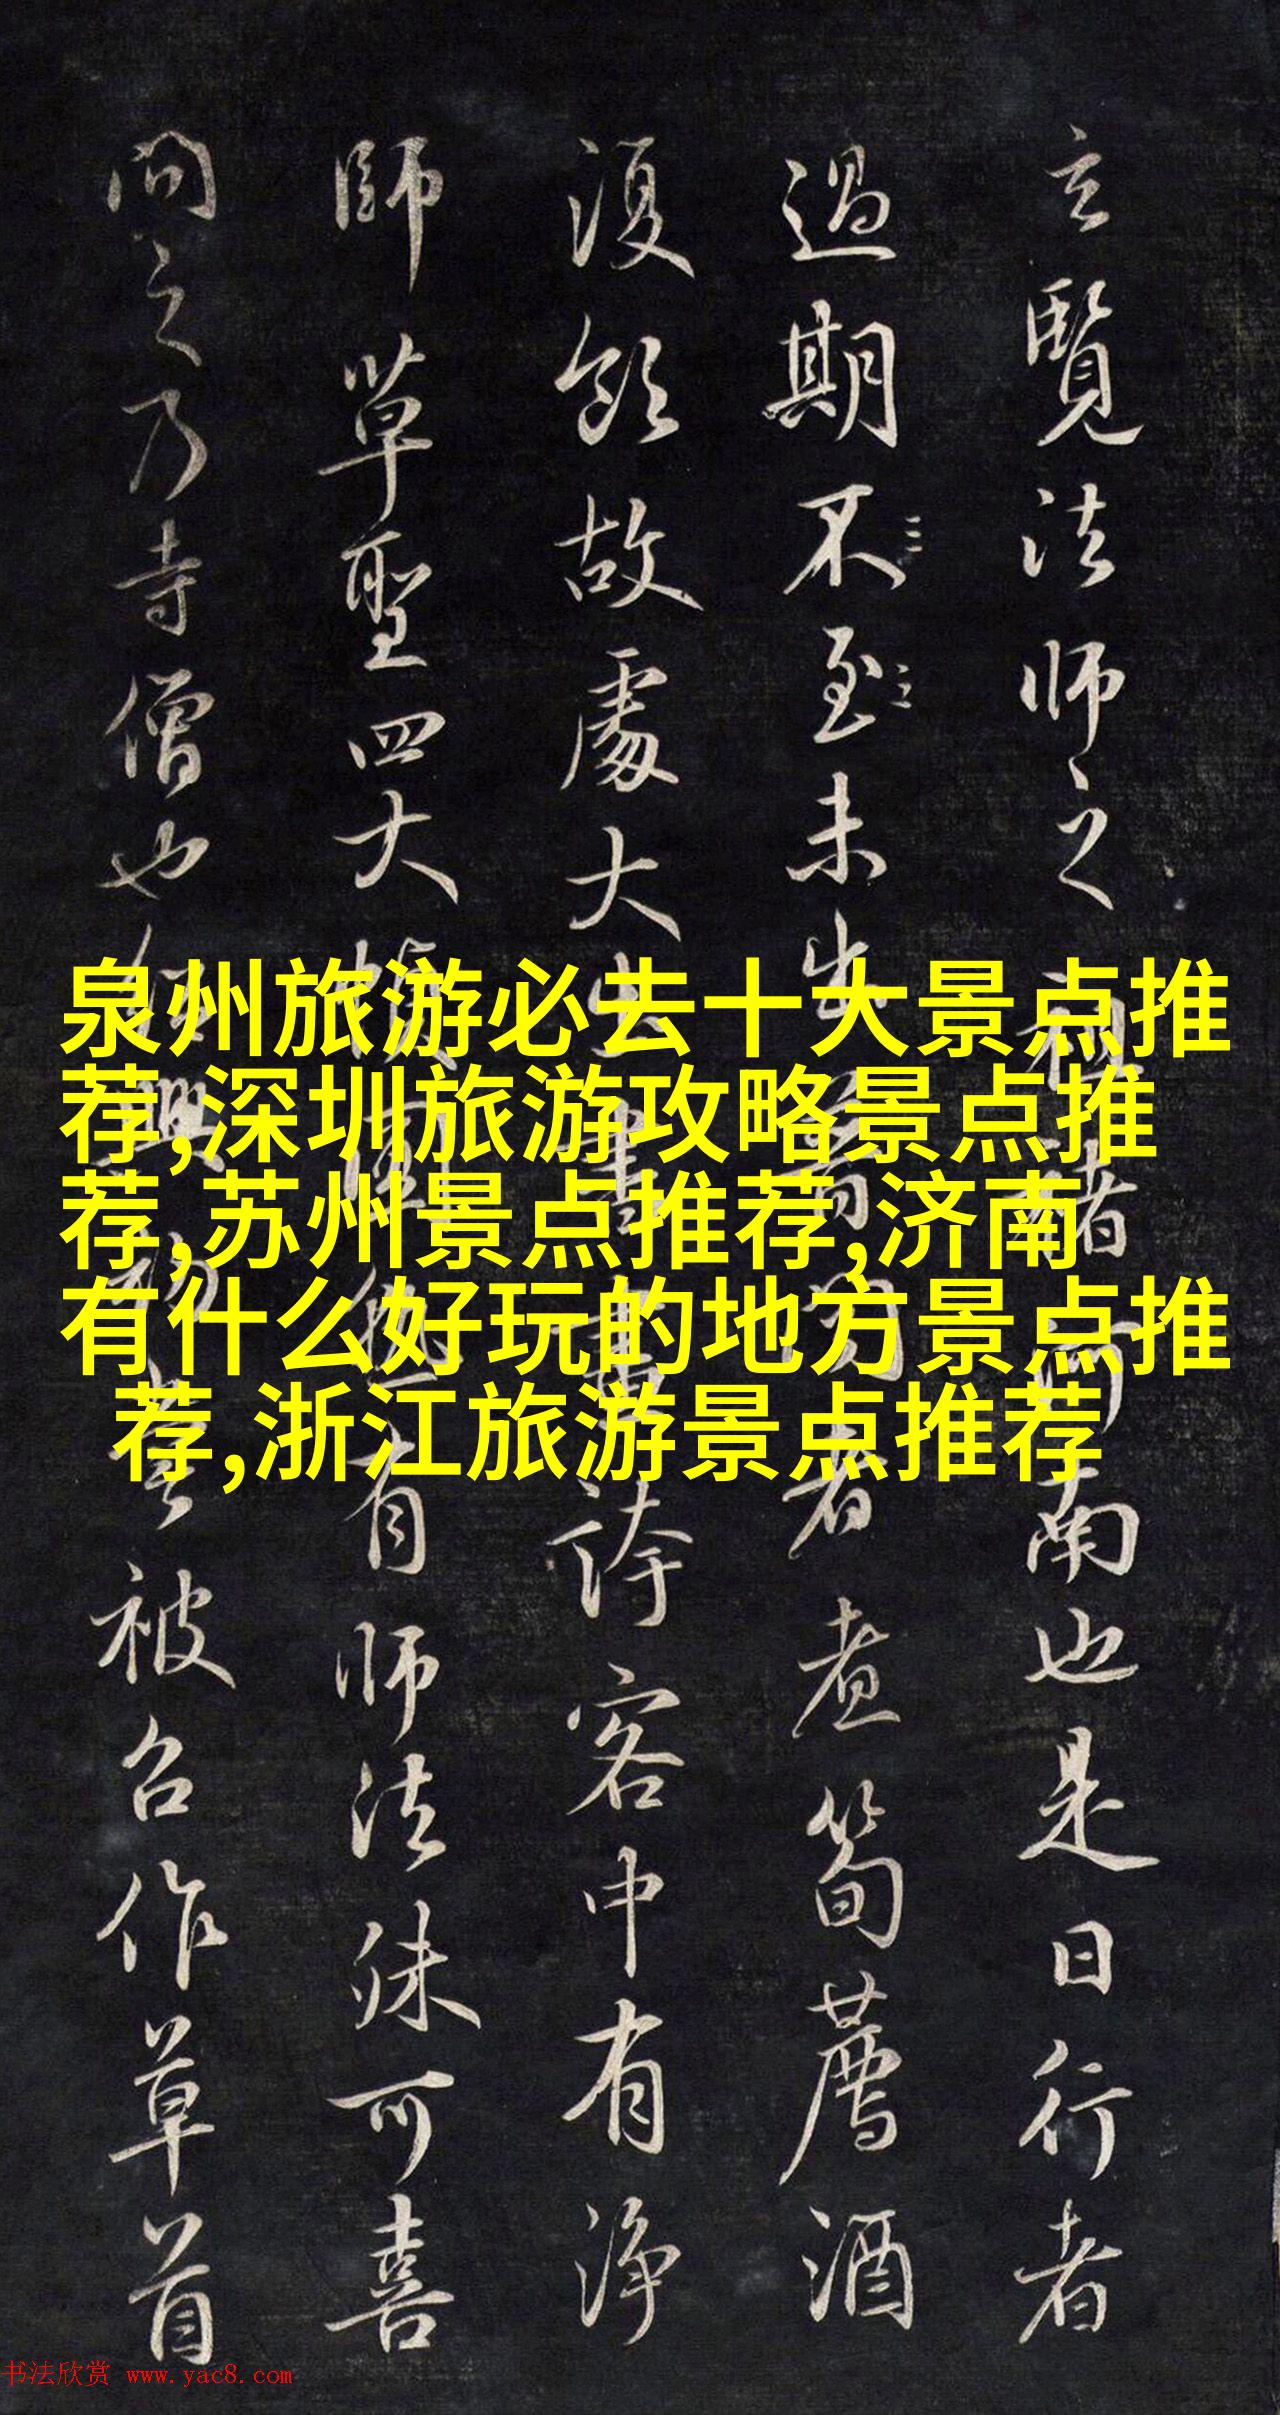 泉州旅游必去十大景点推
荐,深圳旅游攻略景点推
荐,苏州景点推荐,济南
有什么好玩的地方景点推
荐,浙江旅游景点推荐
玄覽法师之南也是日行者
過期不至未出者煮筍薦酒
復飲故處大客中有净
師草聖四大有师法殊可喜
問之乃寺僧也被召作草首
书法欣赏 www.yac8.com